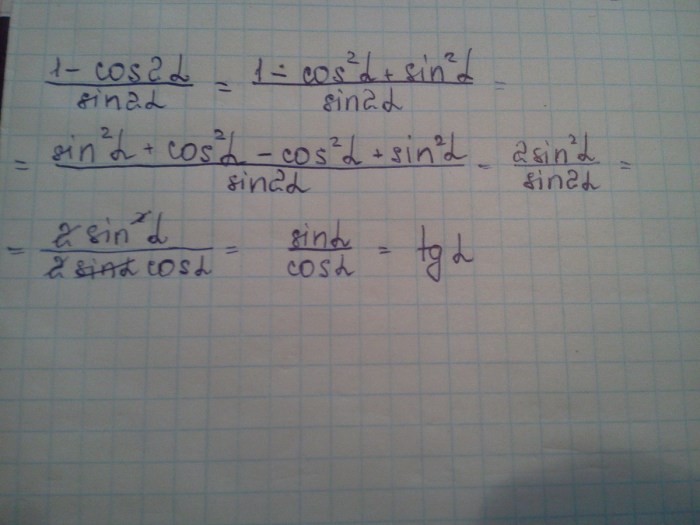 (1 - cos2α)/(sin2α) = (1 - cos²α + sin²α)/(sin2α) =
= (sin²α + cos²α - cos²α + sin²α)/(sin2α) = (2sin²α)/(sin2α) =
= (2sin²α)/(2sinα cosα) = (sinα)/(cosα) = tg α